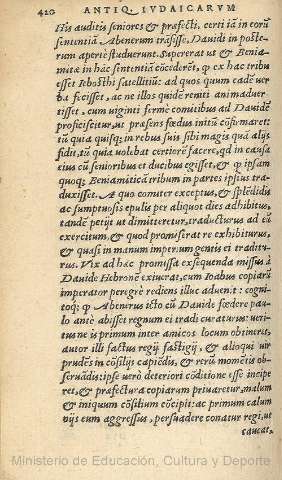 420 ANTIQ. IVDAICARVM
His auditis seniores & præfecti, certi iã in eorũ
sententiã Abenerum trãsisse, Dauidi in poste-
rum aperiẽ studuerunt. Supererat ut & Benia-
mitæ in hac sententiã cõcederẽt, ꝙ ex hac tribu
esset Iebosthi satellitiũ: ad quos quum eadẽ uer
ba fecisset, ac ne illos quidẽ reniti animaduer
tisset, cum uiginti fermè comitibus ad Dauidẽ
proficiscitur, ut præsens fœdus initũ cõfirmaret:
tũ quia quisq; in rebus suis sibi magis quã alijs
fidit, tũ quia uolebat certiorẽ facere, qd in causa
eius cũ senioribus et ducibus egisset, & ꝙ ipsam
quoq; Beniamiticã tribum in partes ipsius tra-
duxisset. A quo comiter exceptus, & splẽdidis
ac sumptuosis epulis per aliquot dies adhibitus,
tandẽ petijt ut dimitteretur, traducturus ad eũ
exercitum, & quod promiserat re exhibiturus,
& quasi in manum imperium gentis ei traditu
rus. Vix ad hæc promissa exsequenda missus à
Dauide Hebronẽ exiuerat, cum Ioabus copiarũ
imperator peregrè rediens illuc aduenit: cogni-
toq; ꝙ Abenerus icto cũ Dauide fœdere paulo
lo antè abisset regnum ei tradi curaturus: ueri-
tus ne is primum inter amicos locum obtineret,
autor illi factus regij fastigij, & alioqui uir
prudẽs in cõsilijs capiẽdis, & rerũ momẽtis ob-
seruãdis: ipse uerò deteriori cõditione esse incipe
ret, & præfectura copiarum priuaretur, malum
& iniquum cõsilium cõcipit: ac primum calum
nijs eum aggressus, persuadere conatur regi, ut
caueat,
Ministerio de Educación, Cultura y Deporte